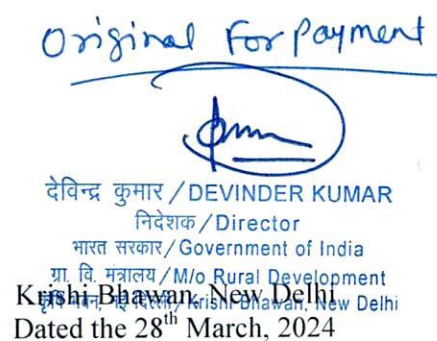 Original For payment
देविन्द्र कुमार / DEVINDER KUMAR
निदेशक / Director
भारत सरकार / Government of India
ग्रा. वि. मंत्रालय / M/o Rural Development
कृषि भवन, नई दिल्ली / Krishi Bhawan, New Delhi
Krishi Bhawan, New Delhi
Dated the 28th March, 2024